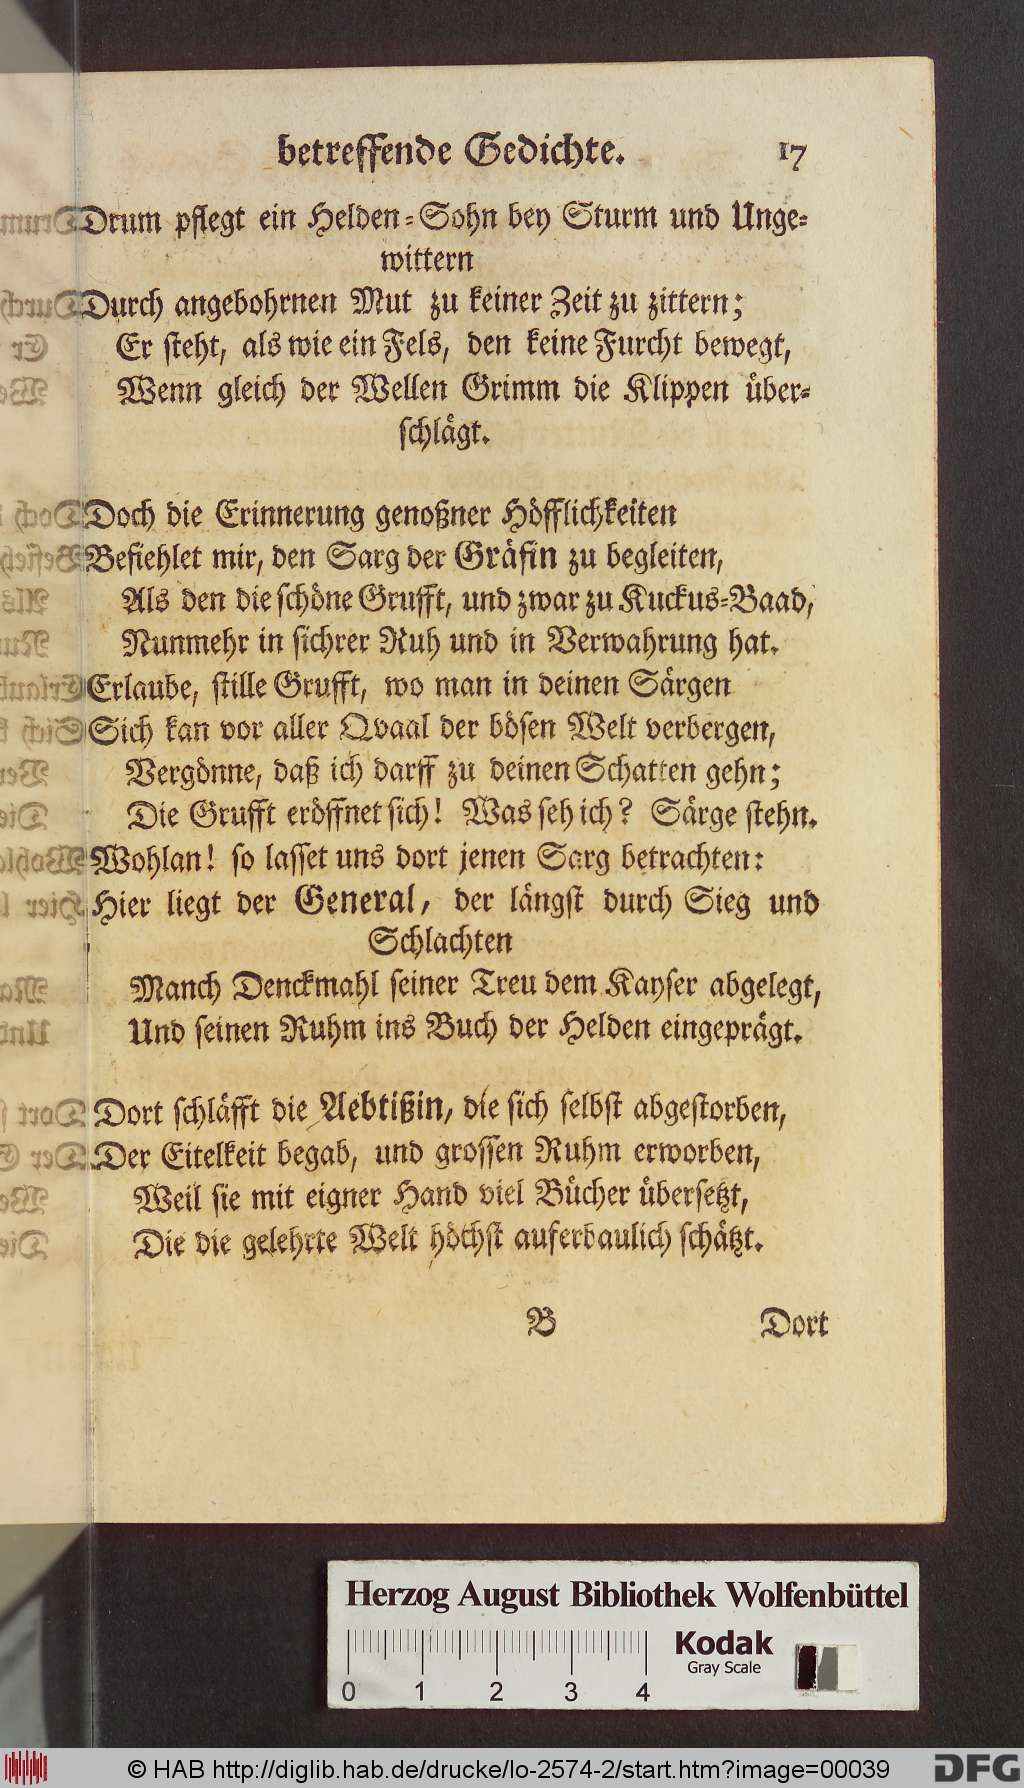 betreffende Gedichte. 17
Drum pflegt ein Helden-Sohn bey Sturm und Unge-
wittern
Durch angebohrnen Mut zu keiner Zeit zu zittern;
Er steht, als wie ein Fels, den keine Furcht bewegt,
Wenn gleich der Wellen Grimm die Klippen über-
schlägt.
Doch die Erinnerung genoßner Höfflichkeiten
Befiehlet mir, den Sarg der Gräfin zu begleiten,
Als den die schöne Grufft, und zwar zu Kuckus-Baad,
Nunmehr in sichrer Ruh und in Verwahrung hat.
Erlaube, stille Grufft, wo man in deinen Särgen
Sich kan vor aller Qvaal der bösen Welt verbergen,
Vergönne, daß ich darff zu deinen Schatten gehn;
Die Grufft eröffnet sich! Was seh ich? Särge stehn.
Wohlan! so lasset uns dort jenen Sarg betrachten:
Hier liegt der General, der längst durch Sieg und
Schlachten
Manch Denckmahl seiner Treu dem Kayser abgelegt,
Und seinen Ruhm ins Buch der Helden eingeprägt.
Dort schläfft die Aebtißin, die sich selbst abgestorben,
Der Eitelkeit begab, und grossen Ruhm erworben,
Weil sie mit eigner Hand viel Bücher übersetzt,
Die die gelehrte Welt höchst auferbaulich schätzt.
B Dort
Herzog August Bibliothek Wolfenbüttel
Kodak
Gray Scale
0 1 2 3 4
© HAB http://diglib.hab.de/drucke/lo-2574-2/start.htm?image=00039
DFG